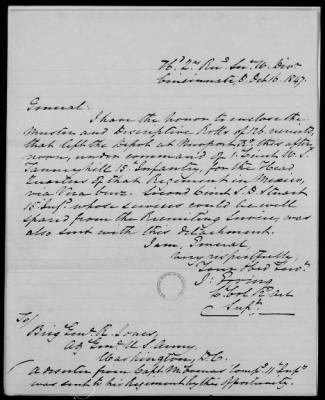 Hd Qrs Recg Serv. W. Divn
Cincinnati, O. Oct. 16 1847.
General.
I have the honor to enclose the
Muster and Descriptive Rolls of 126 recruits,
that left the Depot at Newport, Ky this after
noon, under command of 1. Lieut W. S.
Tannyhill 15th Infantry, for the Head
Quarters of that Regiment in Mexico,
via Vera Cruz. Second Lieut J. D Stuart
15 Infy. whose services could be well
spared from the Recruiting Service, was
also sent with this detachment.
I am, General
Very respectfully,
Your Obed Servt.
J. Erving
Lt Col 2d Art
Supt.
To/
Brig Genl. R. Jones,
Adj Genl. U S. Army
Washington, D. C.
A deserter from Capt. Compy 11th Infy
was sent to his Regiment by this opportunity.